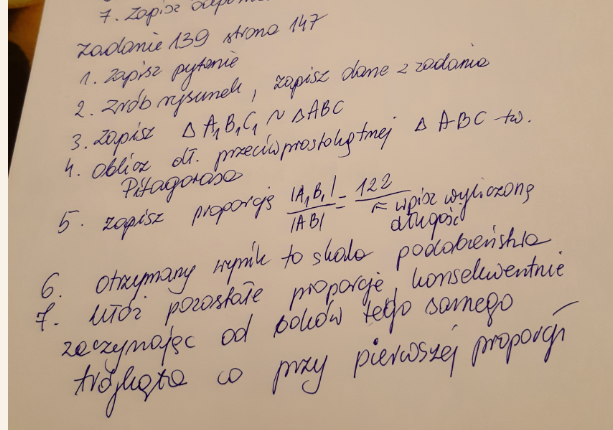 7. Zapisz
zadanie 139 strona 147
1. zapisz pytanie
2. zrób rysunek, zapisz dane z zadania
3. zapisz △ A₁B₁C₁ ~ △ABC
4. oblicz dł. przeciwprostokątnej △ ABC tw.
Pitagorasa
5. zapisz proporcję |A₁B₁|/|AB| = 122/ ← wpisz wyliczoną
długość
6. otrzymany wynik to skala podobieństwa
7. ułóż pozostałe proporcje, konsekwentnie
zaczynając od boków tego samego
trójkąta co przy pierwszej proporcji